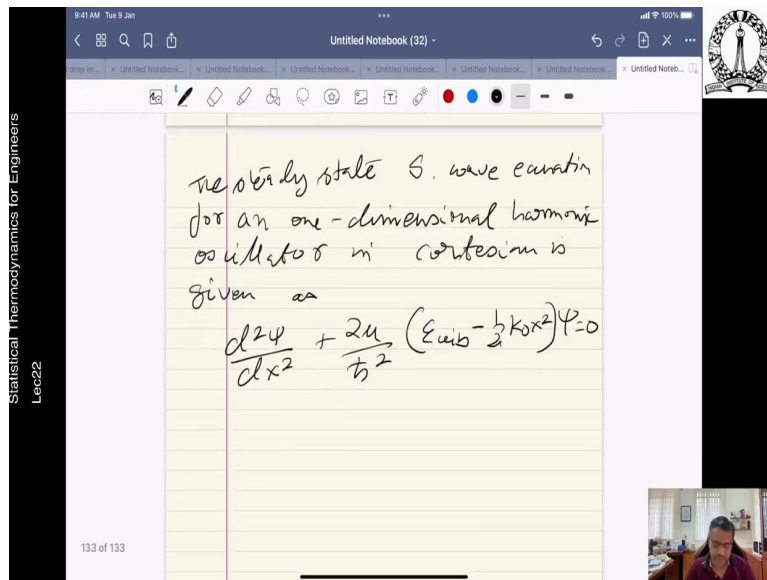 9:41 AM Tue 9 Jan
100%
Untitled Notebook (32)
drop im...
× Untitled Notebook...
× Untitled Notebook...
× Untitled Notebook...
× Untitled Notebook...
× Untitled Notebook...
× Untitled Notebook...
× Untitled Noteb...
Statistical Thermodynamics for Engineers
Lec22
The steady state S. wave equation
for an one-dimensional harmonic
oscillator in cartesian is
given as
d²ψ/dx² + 2μ/ħ² (ε_vib - 1/2 k₀x²)ψ=0
133 of 133